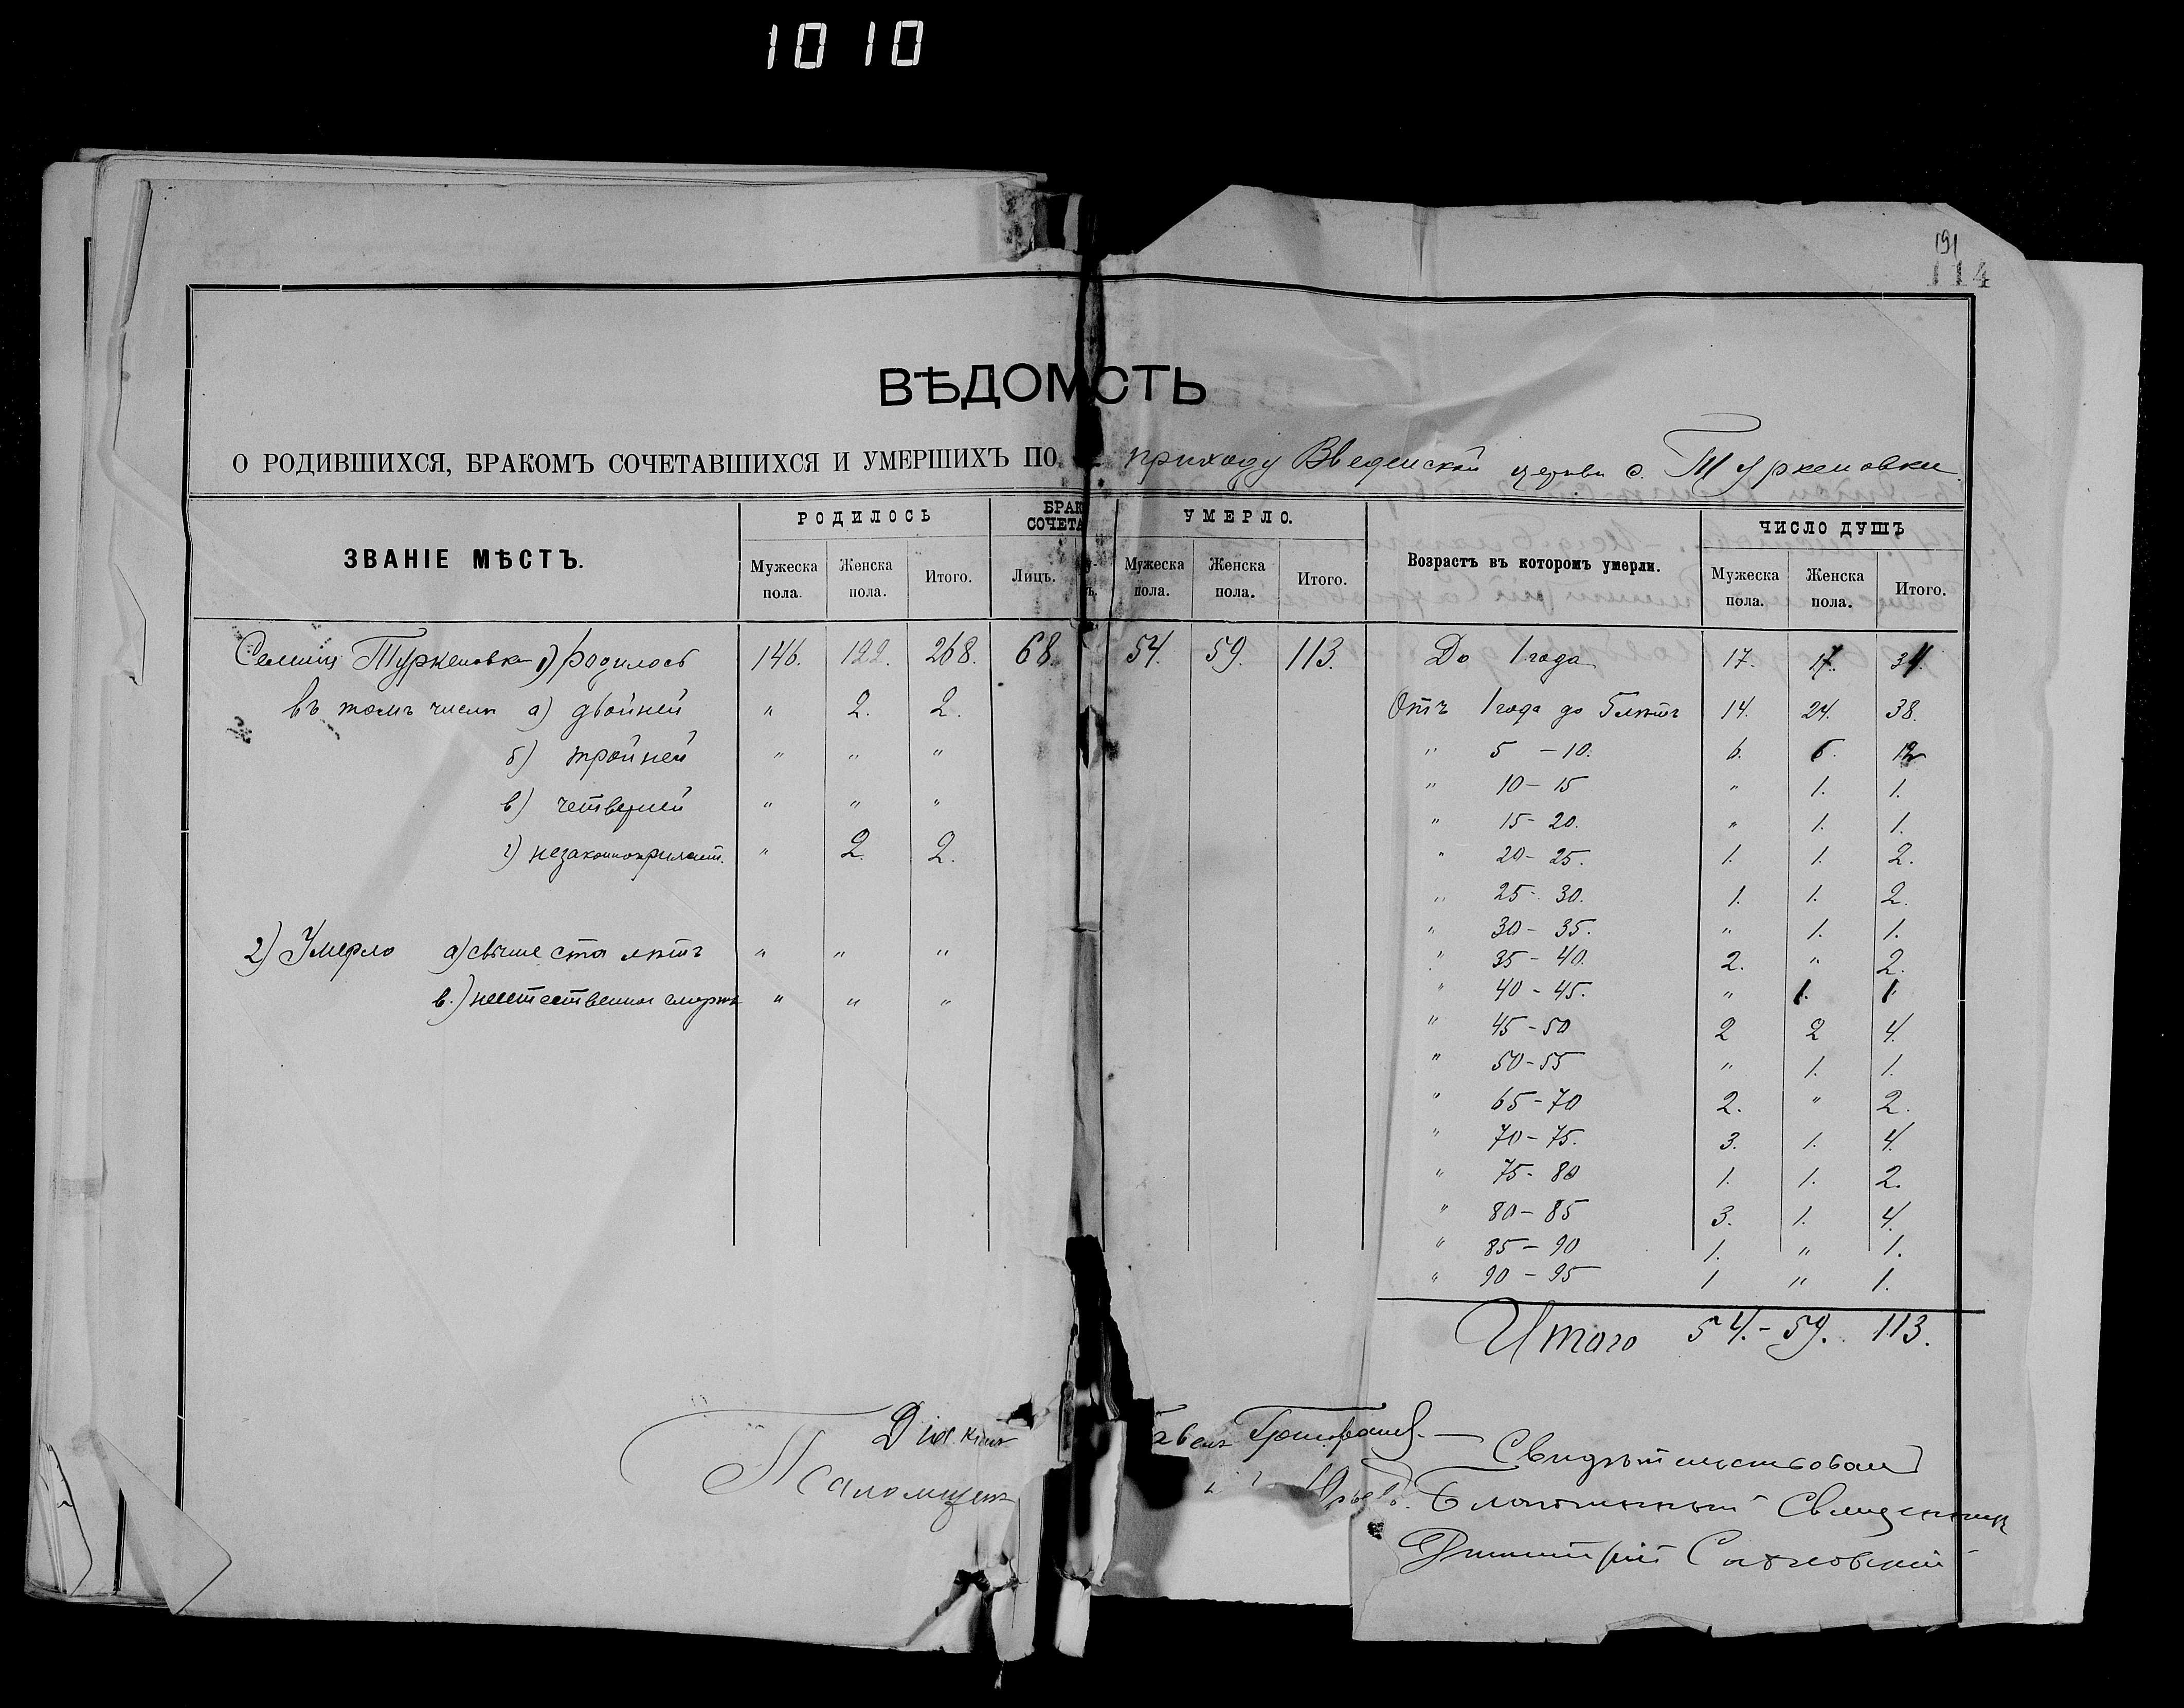 1010
191
114
ВѢДОМОСТЬ
О РОДИВШИХСЯ, БРАКОМЪ СОЧЕТАВШИХСЯ И УМЕРШИХЪ ПО приходу Введенской церкви с. Туркеновки
ЗВАНІЕ МѢСТЪ. РОДИЛОСЬ БРАК СОЧЕТА УМЕРЛО. Возрастъ въ которомъ умерли. ЧИСЛО ДУШЪ
Мужеска пола. Женска пола. Итого. Лицъ. Мужеска пола. Женска пола. Итого. Мужеска пола. Женска пола. Итого.
Туркеновка 1) родилось 146. 122. 268. 68. 54. 59. 113. До 1 года 17. 17. 34.
въ томъ числѣ а) двойней " 2. 2. Отъ 1 года до 5 лѣтъ 14. 24. 38.
б) тройней " " " " 5 - 10. 6. 6. 12
в) четверней " " " " 10 - 15 " 1. 1.
" 15 - 20. " 1. 1.
г) незаконнорожденн. " 2. 2. " 20 - 25. 1. 1. 2.
" 25 - 30. 1. 1. 2.
" 30 - 35. " 1. 1.
2) Умерло а) свыше ста лѣтъ " " " " 35 - 40. 2. " 2.
в.) неестественною смертью " " " " 40 - 45. " 1. 1.
" 45 - 50 2 2 4.
" 50 - 55 " 1. 1.
" 65 - 70 2. " 2.
" 70 - 75. 3. 1. 4.
" 75 - 80 1. 1. 2.
" 80 - 85 3. 1. 4.
" 85 - 90 1. " 1.
" 90 - 95 1 " 1.
Итого 54. - 59. 113.
Діаконъ
Псаломщикъ Юрьевъ.
Свидѣтельствовалъ
Благочинный Священникъ
Димитрій